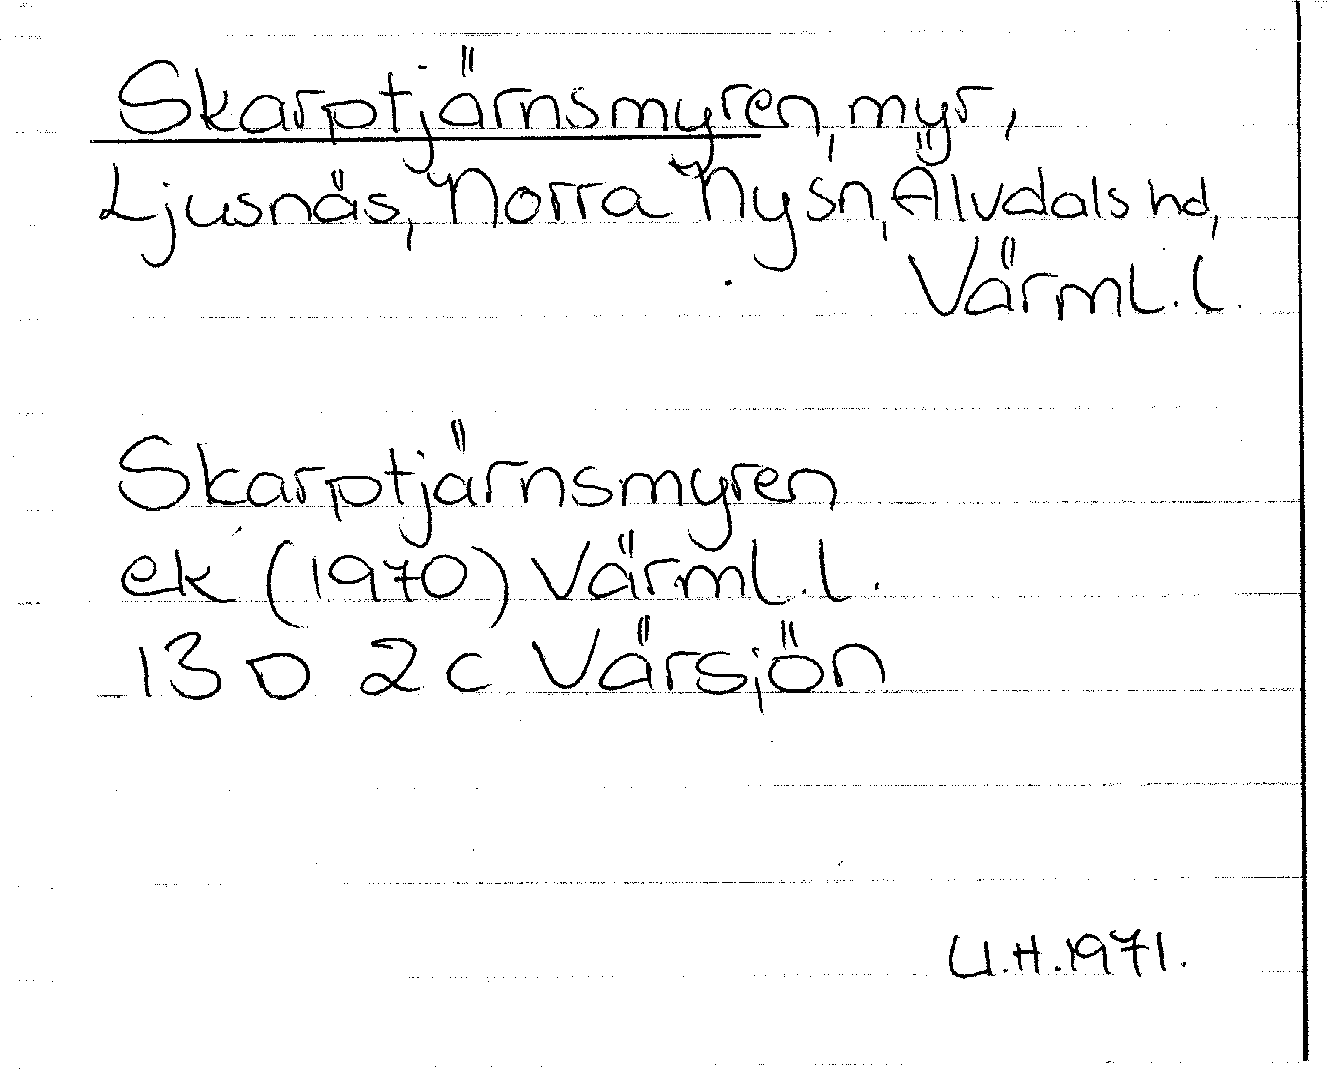 Skarptjärnsmyren, myr,
Ljusnäs, Norra Nysn, Älvdals hd,
Värml. l.
Skarptjärnsmyren
ek (1970) Värml. l.
13 D 2 c Värsjön
U.H. 1971.